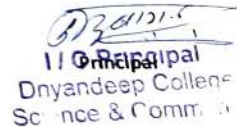 I/C Principal
Principal
Dnyandeep College
Science & Comm